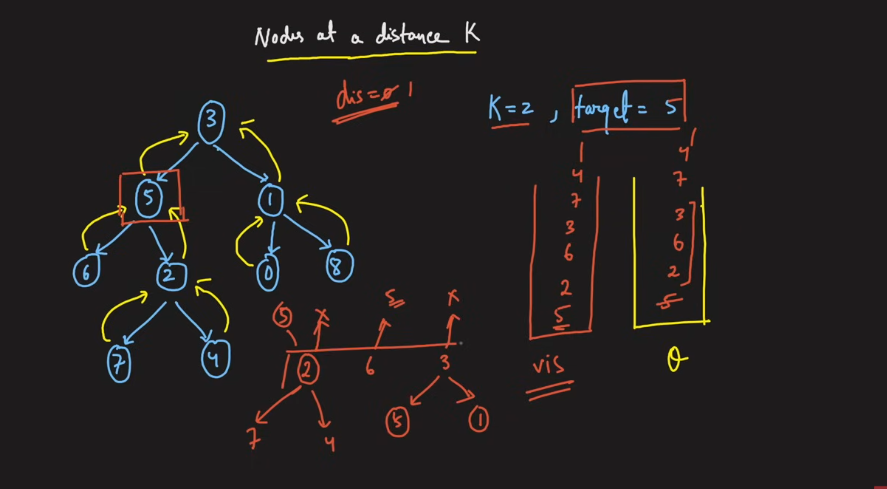 Nodes at a distance K
dis=0 1
K=2 , target = 5
3
5 1
6 2 0 8
7 4
5 x 5 x
2 6 3
7 4 5 1
1
4
7
3
6
2
5
vis
1
4
7
3
6
2
5
Q